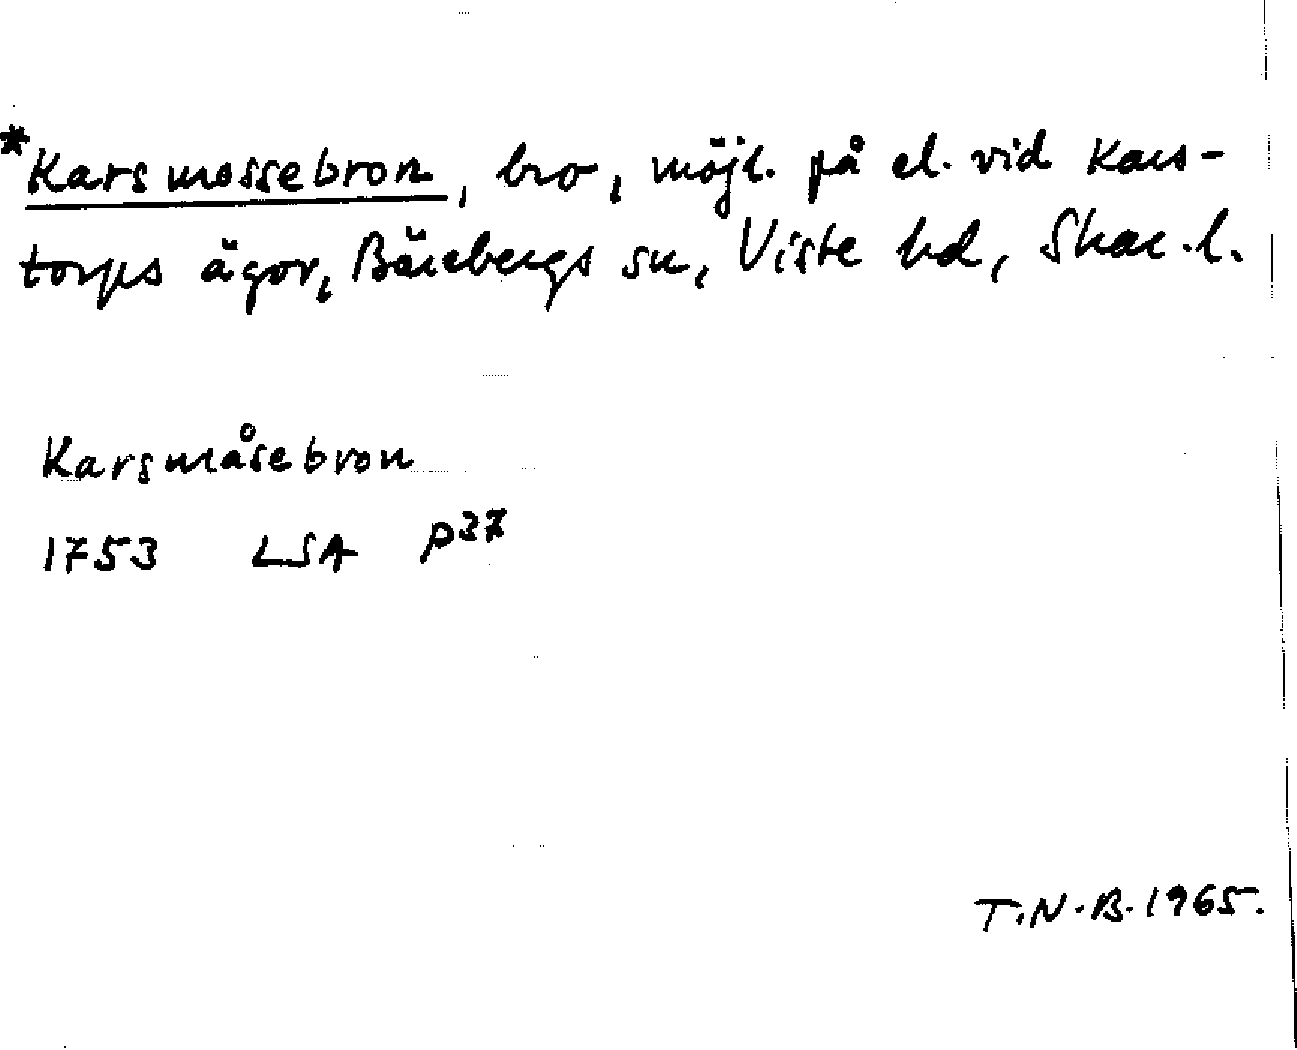 *Karsmossebron, bro, möjl. på el. vid Kars-
torps ägor, Bärebergs sn, Viste hd, Skar.l.
Karsmåsebron
1753 LSA P37
T.N.B. 1965.